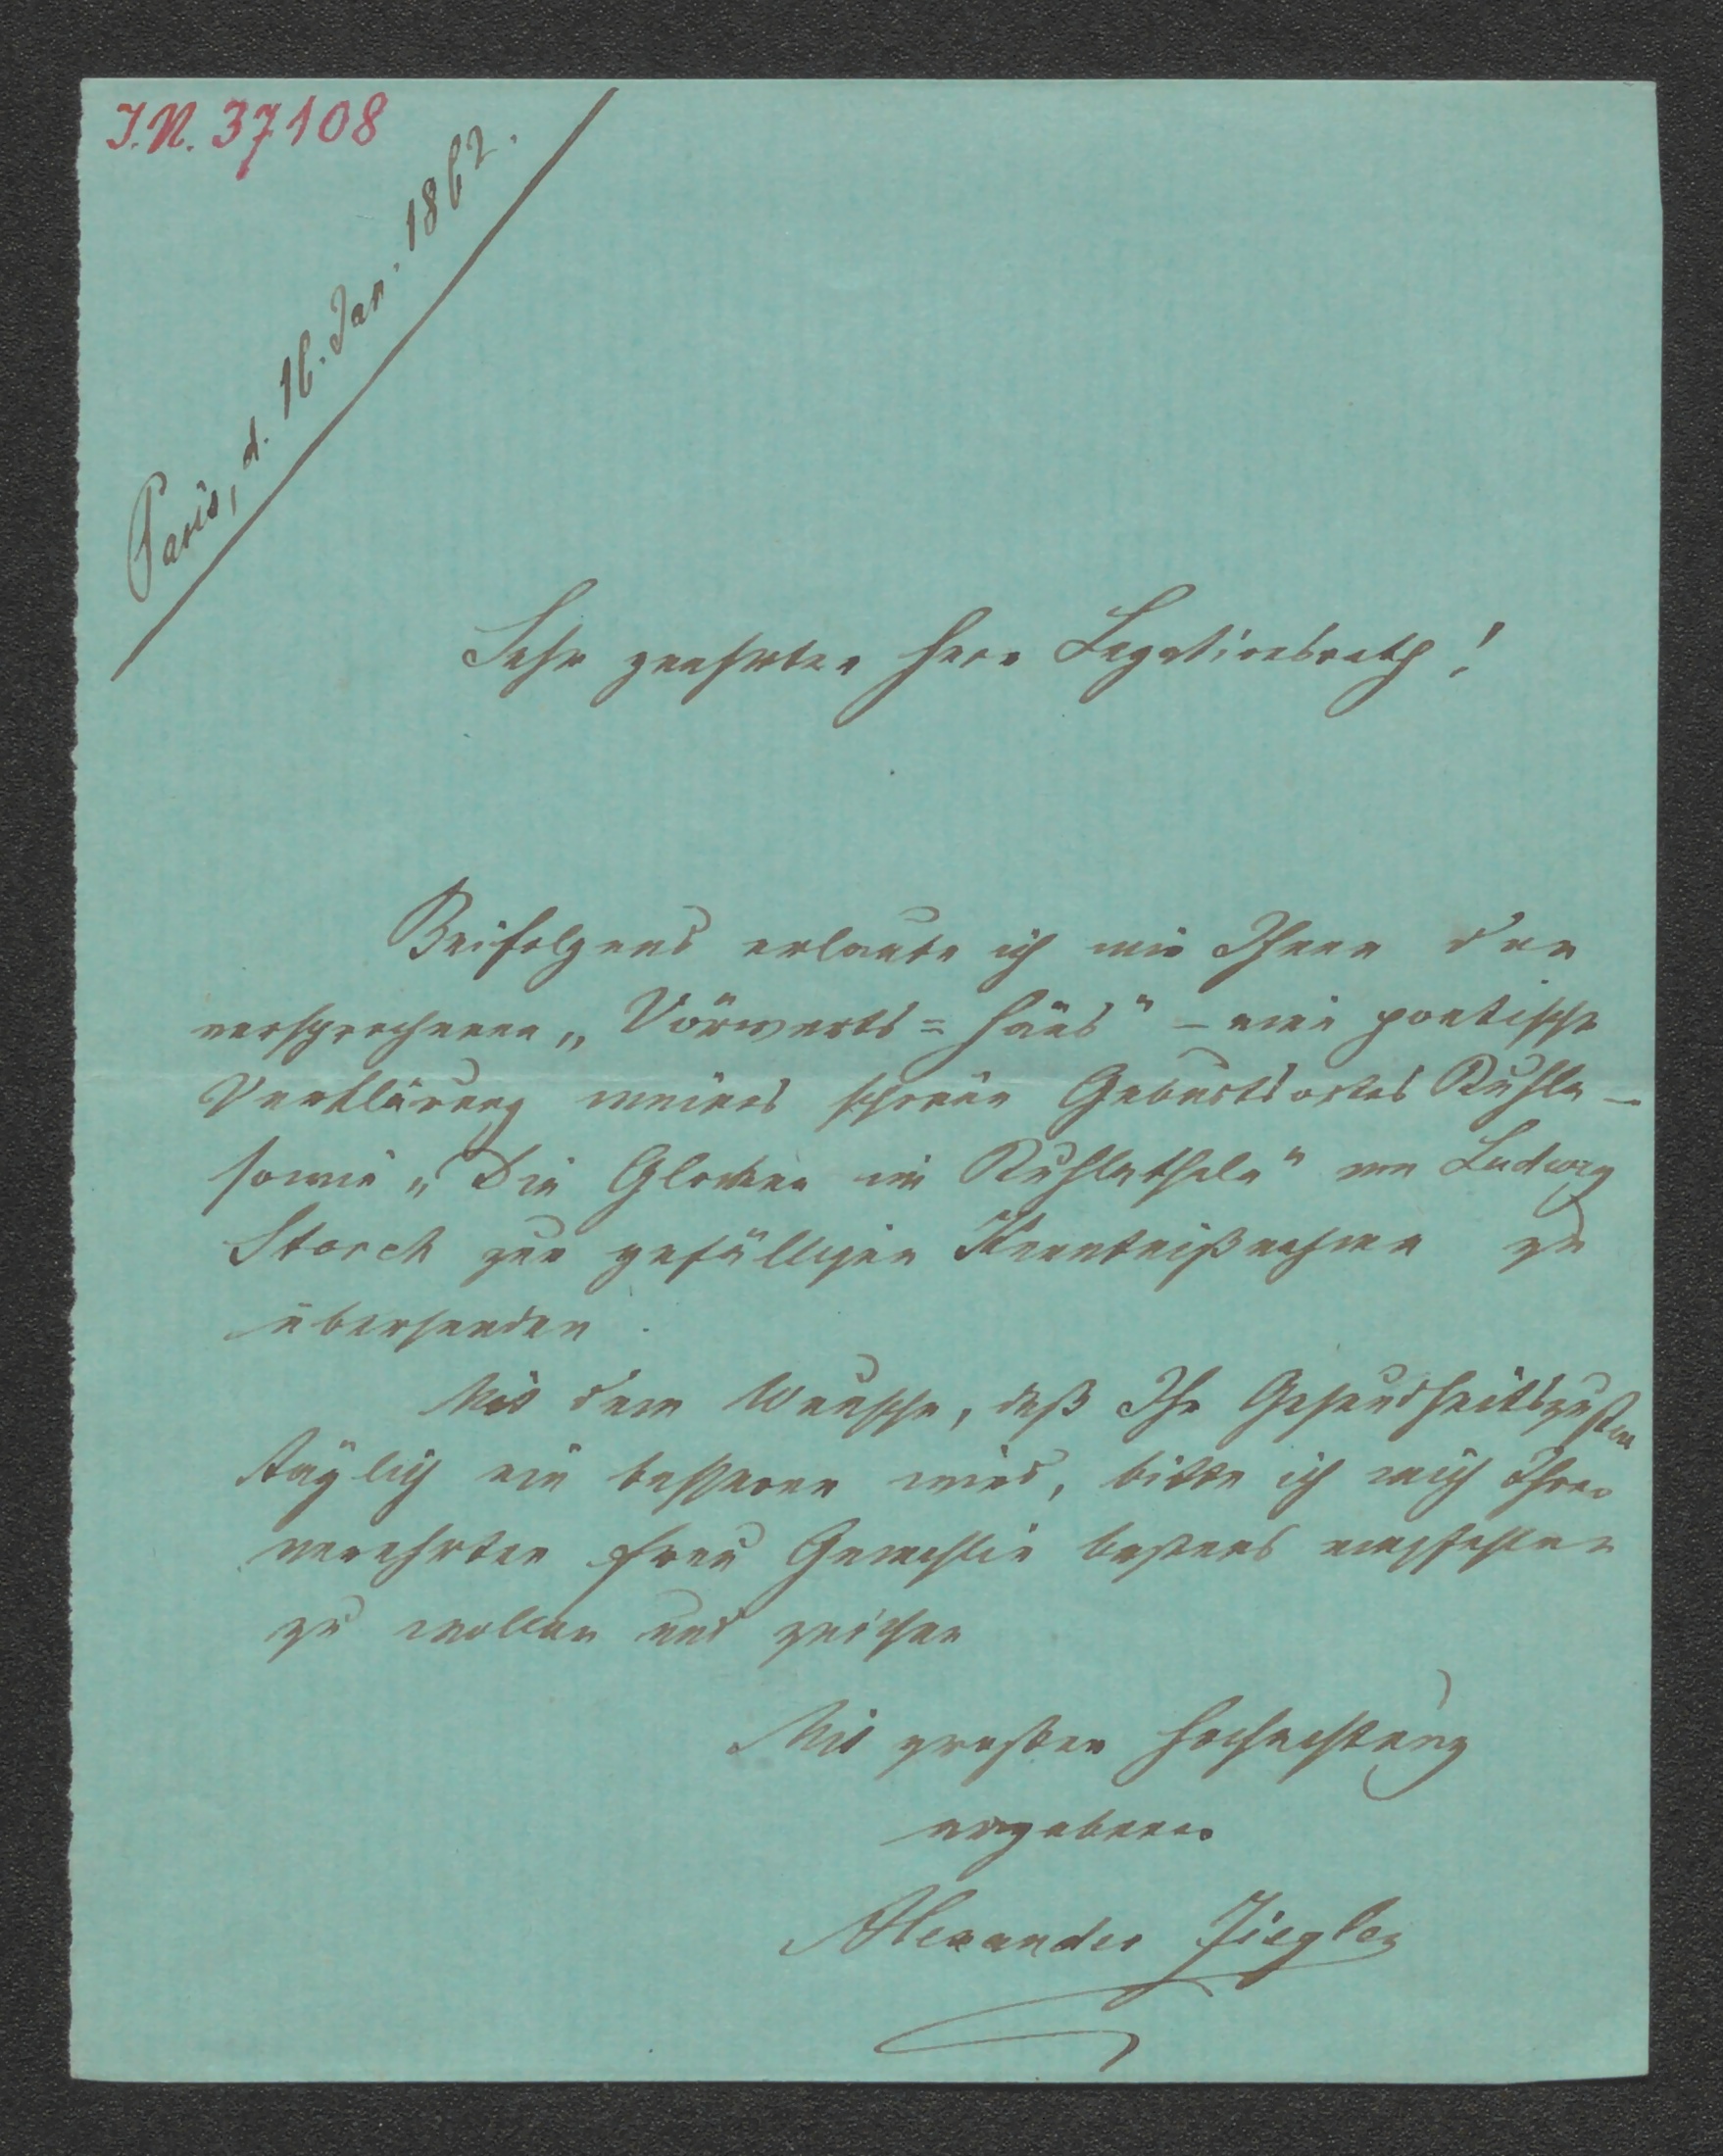 I.N. 37108
Paris, d. 16. Jan. 1862.
Sehr geehrter Herr Legationsrath!
Beifolgend erlaube ich mir Ihnen den
versprochenen „Vörwerts=Häns" – eine poetische
Verklärung meines schönen Geburtsortes Ruhla –
sowie „Die Glocken im Ruhlathale" von Ludwig
Storch zur gefälligen Kenntnißnahme zu
übersenden.
Mit dem Wunsche, daß Ihr Gesundheitszustan
täglich ein besserer wird, bitte ich mich Ihrer
verehrten Frau Gemahlin bestens empfehlen
zu wollen und zeichne
Mit großer Hochachtung
ergebener
Alexander Ziegler